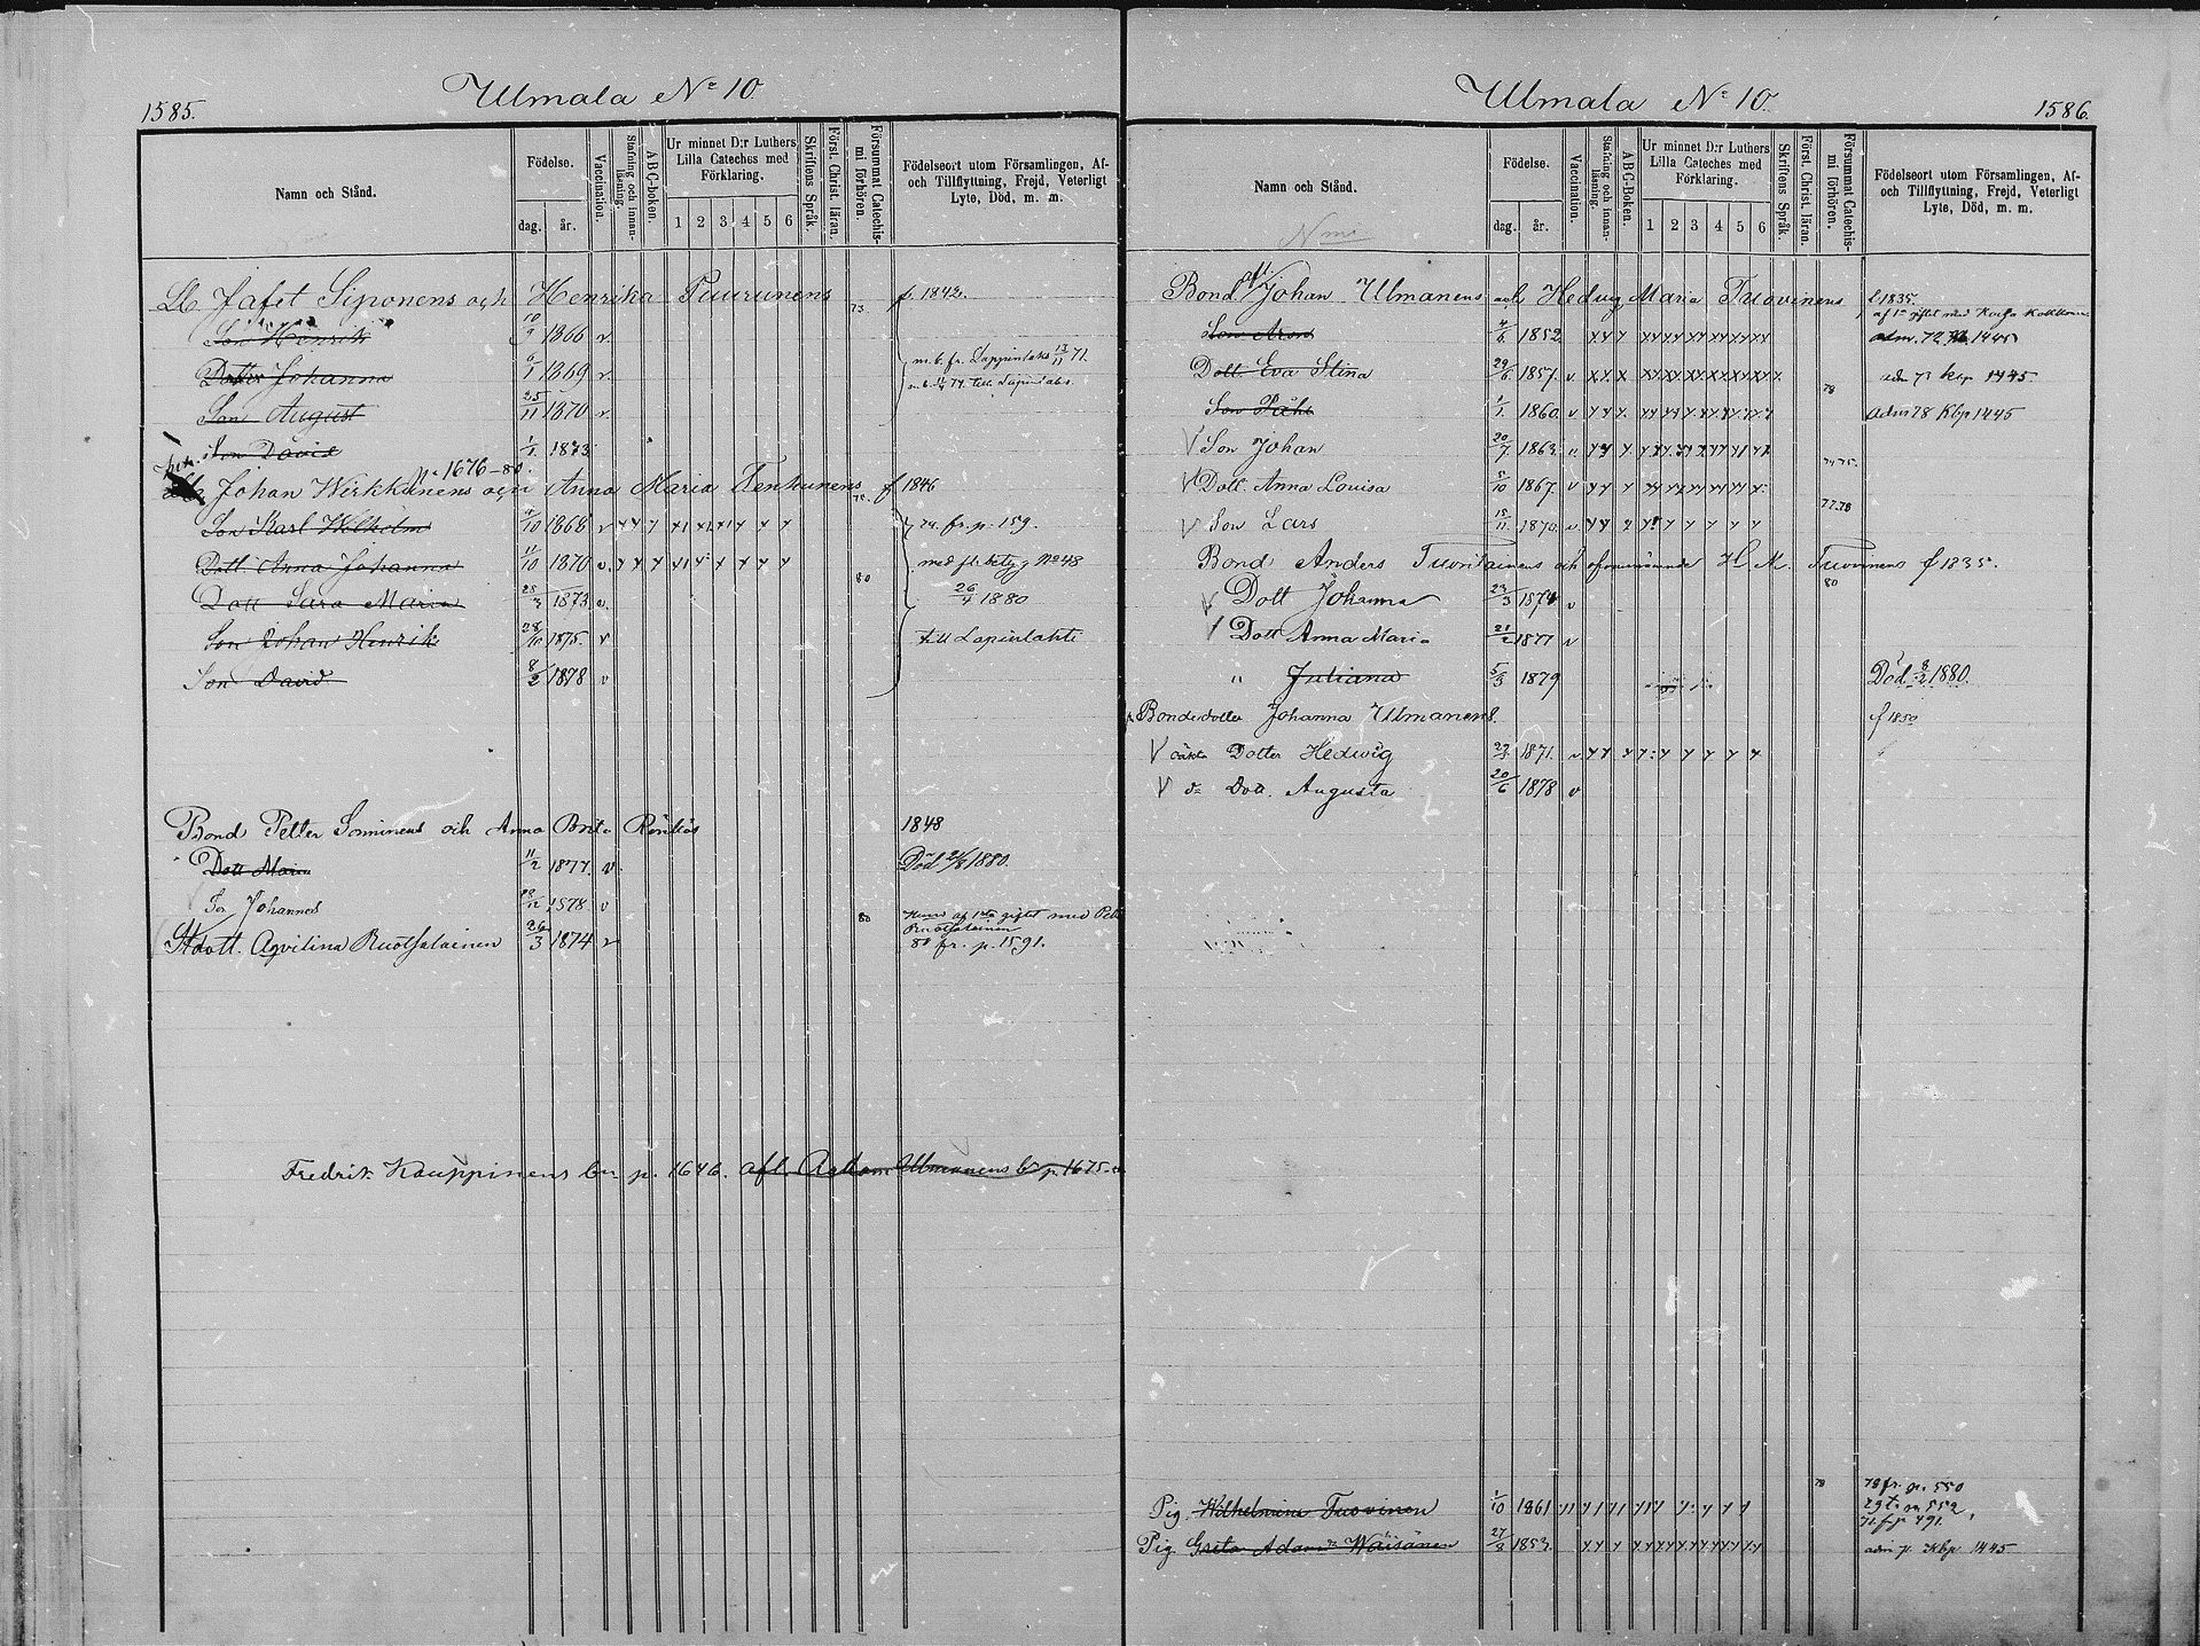 1585.
Ulmala No 10.
Namn och Stånd.
Födelse.
dag.
år.
Vaccination.
Stafning och innan-läsning.
ABC-boken.
Ur minnet D:r Luthers Lilla Cateches med Förklaring.
1 2 3 4 5 6
Skriftens Språk.
Först. Christ. läran.
Försummat Catechis-mi förhören.
Födelseort utom Församlingen, Af- och Tillflyttning, Frejd, Veterligt Lyte, Död, m. m.
Lb. Jafet Siponens och Henrika Puurunens 73. f. 1842.
Son Henrik 10/9 1866 v.
Dotter Johanna 6/1 1869 v. m. b. fr. Lappinlaks 13/11 71.
Son August 25/11 1870 v.
Son David 1/1 1873
p. 1676-80.
Johan Wirkkunens och Anna Maria Tenhunens f 1846
Son Karl Wilhelm 10 1868 v 74. fr. p. 159.
Dott Anna Johanna 11/10 1870 v. 80 med fl. betyg No 48
Dott Sara Maria 25/3 1873 v. 26/4 1880
Son Johan Henrik 28/10 1875. v till Lapinlahti
Son David 8/2 1878 v
Bond Petter Sonninens och Anna Brita 1848
Dott Maria 11/2 1877. v Död 1880.
Son Johannes 1878 v
80 af 1sta giftet med Pett
Ruotsalainen
Stdott. Aqvilina Ruotsalainen 26/3 1874 v 80 fr. p. 1591.
Fredrik Kauppinens bn p. 1646. afl. Adam Ulmanens bn p. 1675
1586.
Ulmala No 10.
Namn och Stånd.
Födelse.
dag.
år.
Vaccination.
Stafning och innan-läsning.
ABC-Boken.
Ur minnet D:r Luthers Lilla Cateches med Förklaring.
1 2 3 4 5 6
Skriftens Språk.
Först. Christ. läran.
Försummat Catechis-mi förhören.
Födelseort utom Församlingen, Af- och Tillflyttning, Frejd, Veterligt Lyte, Död, m. m.
Bond. afl. Johan Ulmanens och Hedvig Maria Tuovinens f 1835.
af 1a giftet med Kaisa
Son Aron 4/6 1852 adm. 72 1445
Dott. Eva Stina 29/6 1857. v 78 adm 73 kbp 1445.
Son Påhl 1/1. 1860 v adm 78 Kbp 1445
Son Johan 20/7 1863. 74 75.
Dott. Anna Louisa 5/10 1867. v 77.78
Son Lars 15/11. 1870. v.
Bond. Anders Tuovinens och H. M. Tuovinens f 1835.
80
Dott Johanna 23/3 1874 v
Dott Anna Maria 21/2 1877 v
" Juliana 5/3 1879 Död 8/2 1880.
Bondedotter Johanna Ulmanens. f 1850
oäkta Dotter Hedwig 1871. v
do Dott. Augusta 20/6 1878 v
Pig. Wilhelmina Tuovinen 1/10 1861 78 78 fr. p. 550
p. 552
71. fr p 491.
Pig. Greta Adamdr Wäisänen 27/8 1853. adm 71 Kbp 1445